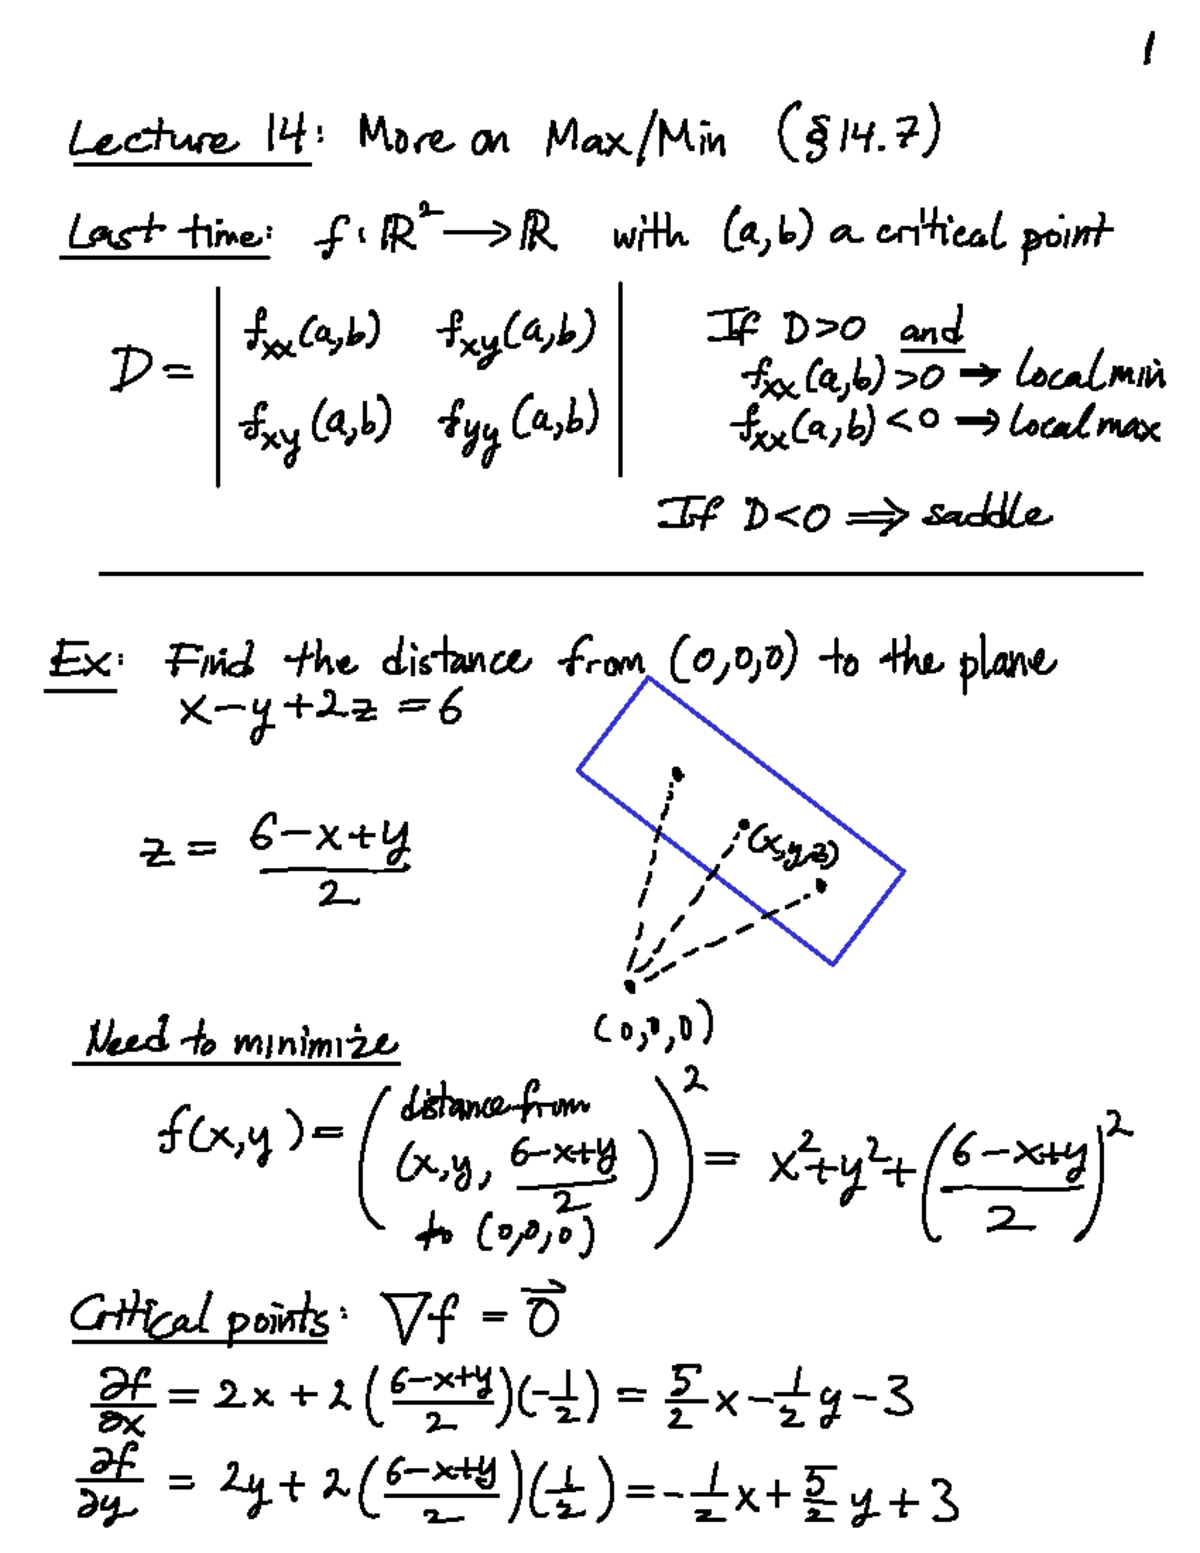 1
Lecture 14: More on Max/Min (§14.7)
Last time: f: ℝ² → ℝ with (a,b) a critical point
D = | f_xx(a,b) f_xy(a,b) |
| f_xy(a,b) f_yy(a,b) |
If D>0 and
f_xx(a,b)>0 ⇒ local min
f_xx(a,b)<0 ⇒ local max
If D<0 ⇒ saddle
Ex: Find the distance from (0,0,0) to the plane
x-y+2z=6
z = (6-x+y)/2
(x,y,z)
(0,0,0)
Need to minimize
f(x,y) = (distance from (x,y,(6-x+y)/2) to (0,0,0))² = x²+y²+((6-x+y)/2)²
Critical points: ∇f = 0⃗
∂f/∂x = 2x + 2((6-x+y)/2)(-1/2) = 5/2 x - 1/2 y - 3
∂f/∂y = 2y + 2((6-x+y)/2)(1/2) = -1/2 x + 5/2 y + 3